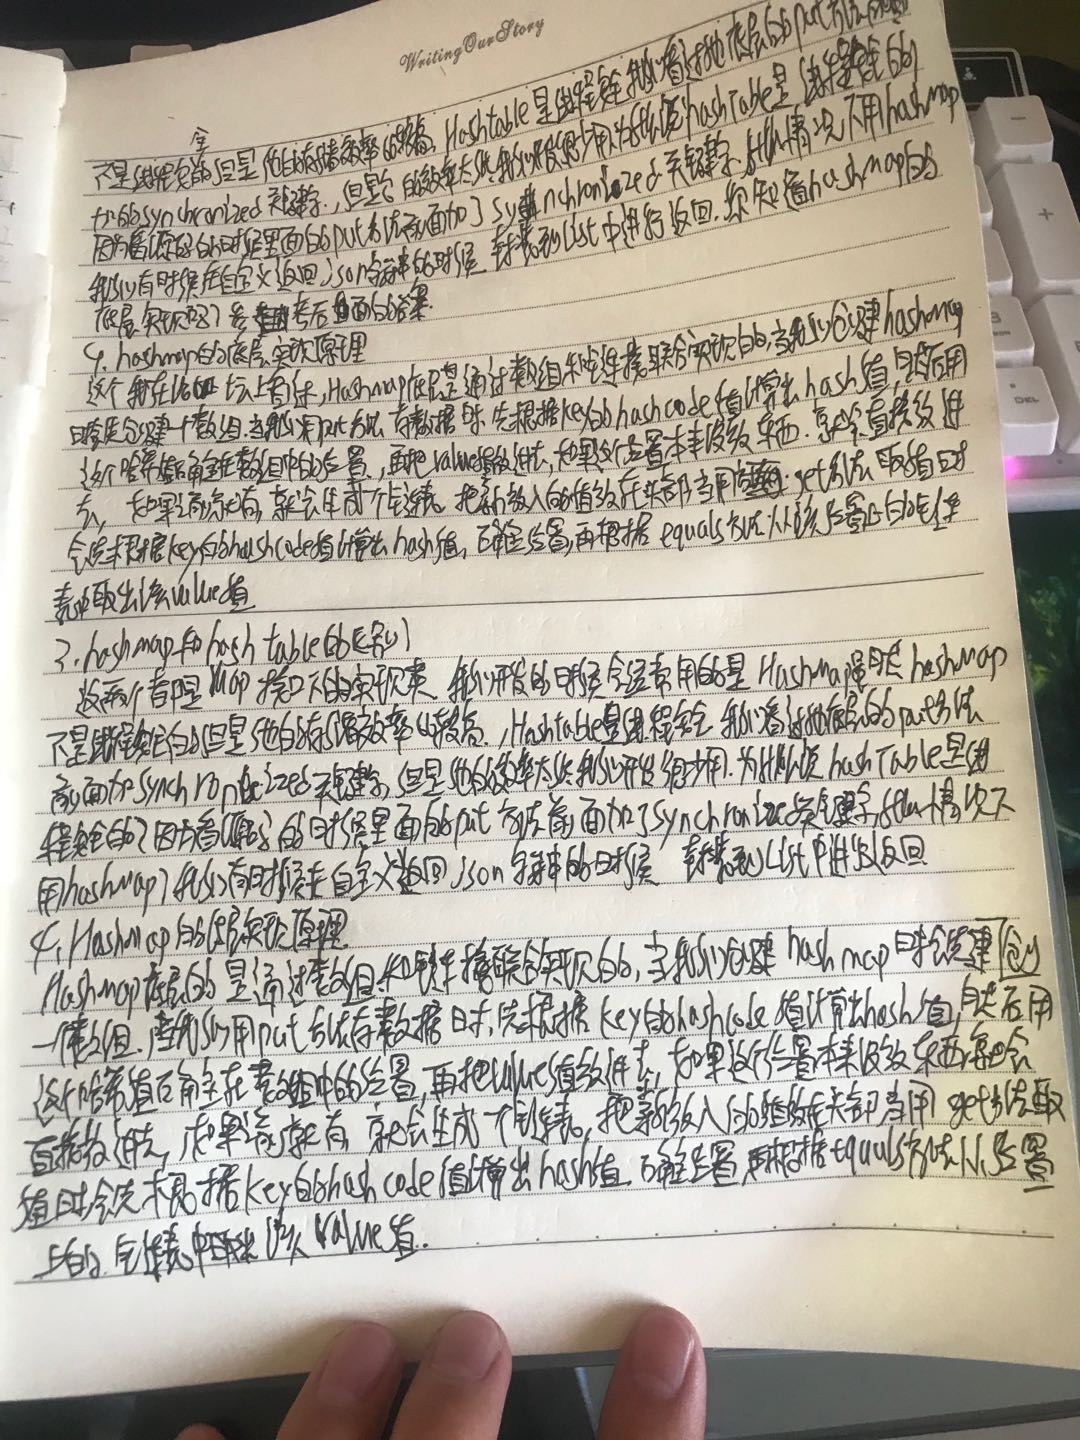 Writing Our Story
全
不是线程安的但是他的存储效率的较高，Hashtable是线程安全 我们看过他底层的put方法前面
加的synchronized关键字，但是它的效率太低 我们开发很少用 为什么说hashTable是线程安全的
因为看源码的时候里面的put方法前面加了synchronized关键字，什么情况下用hashmap
我们有时候在自定义返回json字符串的时候 封装到List中进行返回，你知道hashmap的
底层实现吗？参考后面的答案
4. hashmap的底层实现原理
这个我在论坛上看过，Hashmap底层是通过数组和链接联合实现的，当我们创建hashmap
时会先创建一个数组，当我们用put方法存数据时，先根据key的hashcode值计算出hash值，然后用
这个哈希值确定在数组中的位置，再把value值放进去，如果这个位置本来没放东西，就会直接放进
去，如果之前就有，就会生成一个链表，把新放入的值放在头部，当用get方法取值时
会先根据key的hashcode值计算出hash值，确定位置，再根据equals方法从该位置上的链
表中取出该value值
3. hashmap和hash table的区别
这两个都是Map接口下的实现类，我们开发的时候会经常用的是HashMap虽然hashMap
不是线程安全的但是他的存储效率的较高，Hashtable是线程安全 我们看过他底层的put方法
前面加synchronized关键字，但是他的效率太低 我们开发很少用，为什么说hashTable是线
程安全的？因为看源码的时候里面的put方法前面加了synchronized关键字，什么情况下
用hashmap？我们有时候在自定义返回json字符串的时候 封装到List中进行返回
4. Hashmap的底层实现原理
Hashmap底层的是通过数组和链接联合实现的，当我们创建hashmap时会先建
一个数组，当我们用put方法存数据时，先根据key的hashcode值计算出hash值，然后用
这个哈希值确定在数组中的位置，再把value值放进去，如果这个位置本来没放东西，就会
直接放进去，如果之前就有，就会生成一个链表，把新放入的值放在头部，当用get方法取
值时会先根据key的hashcode值计算出hash值，确定位置，再根据equals方法从位置
上的链表中取出该value值。